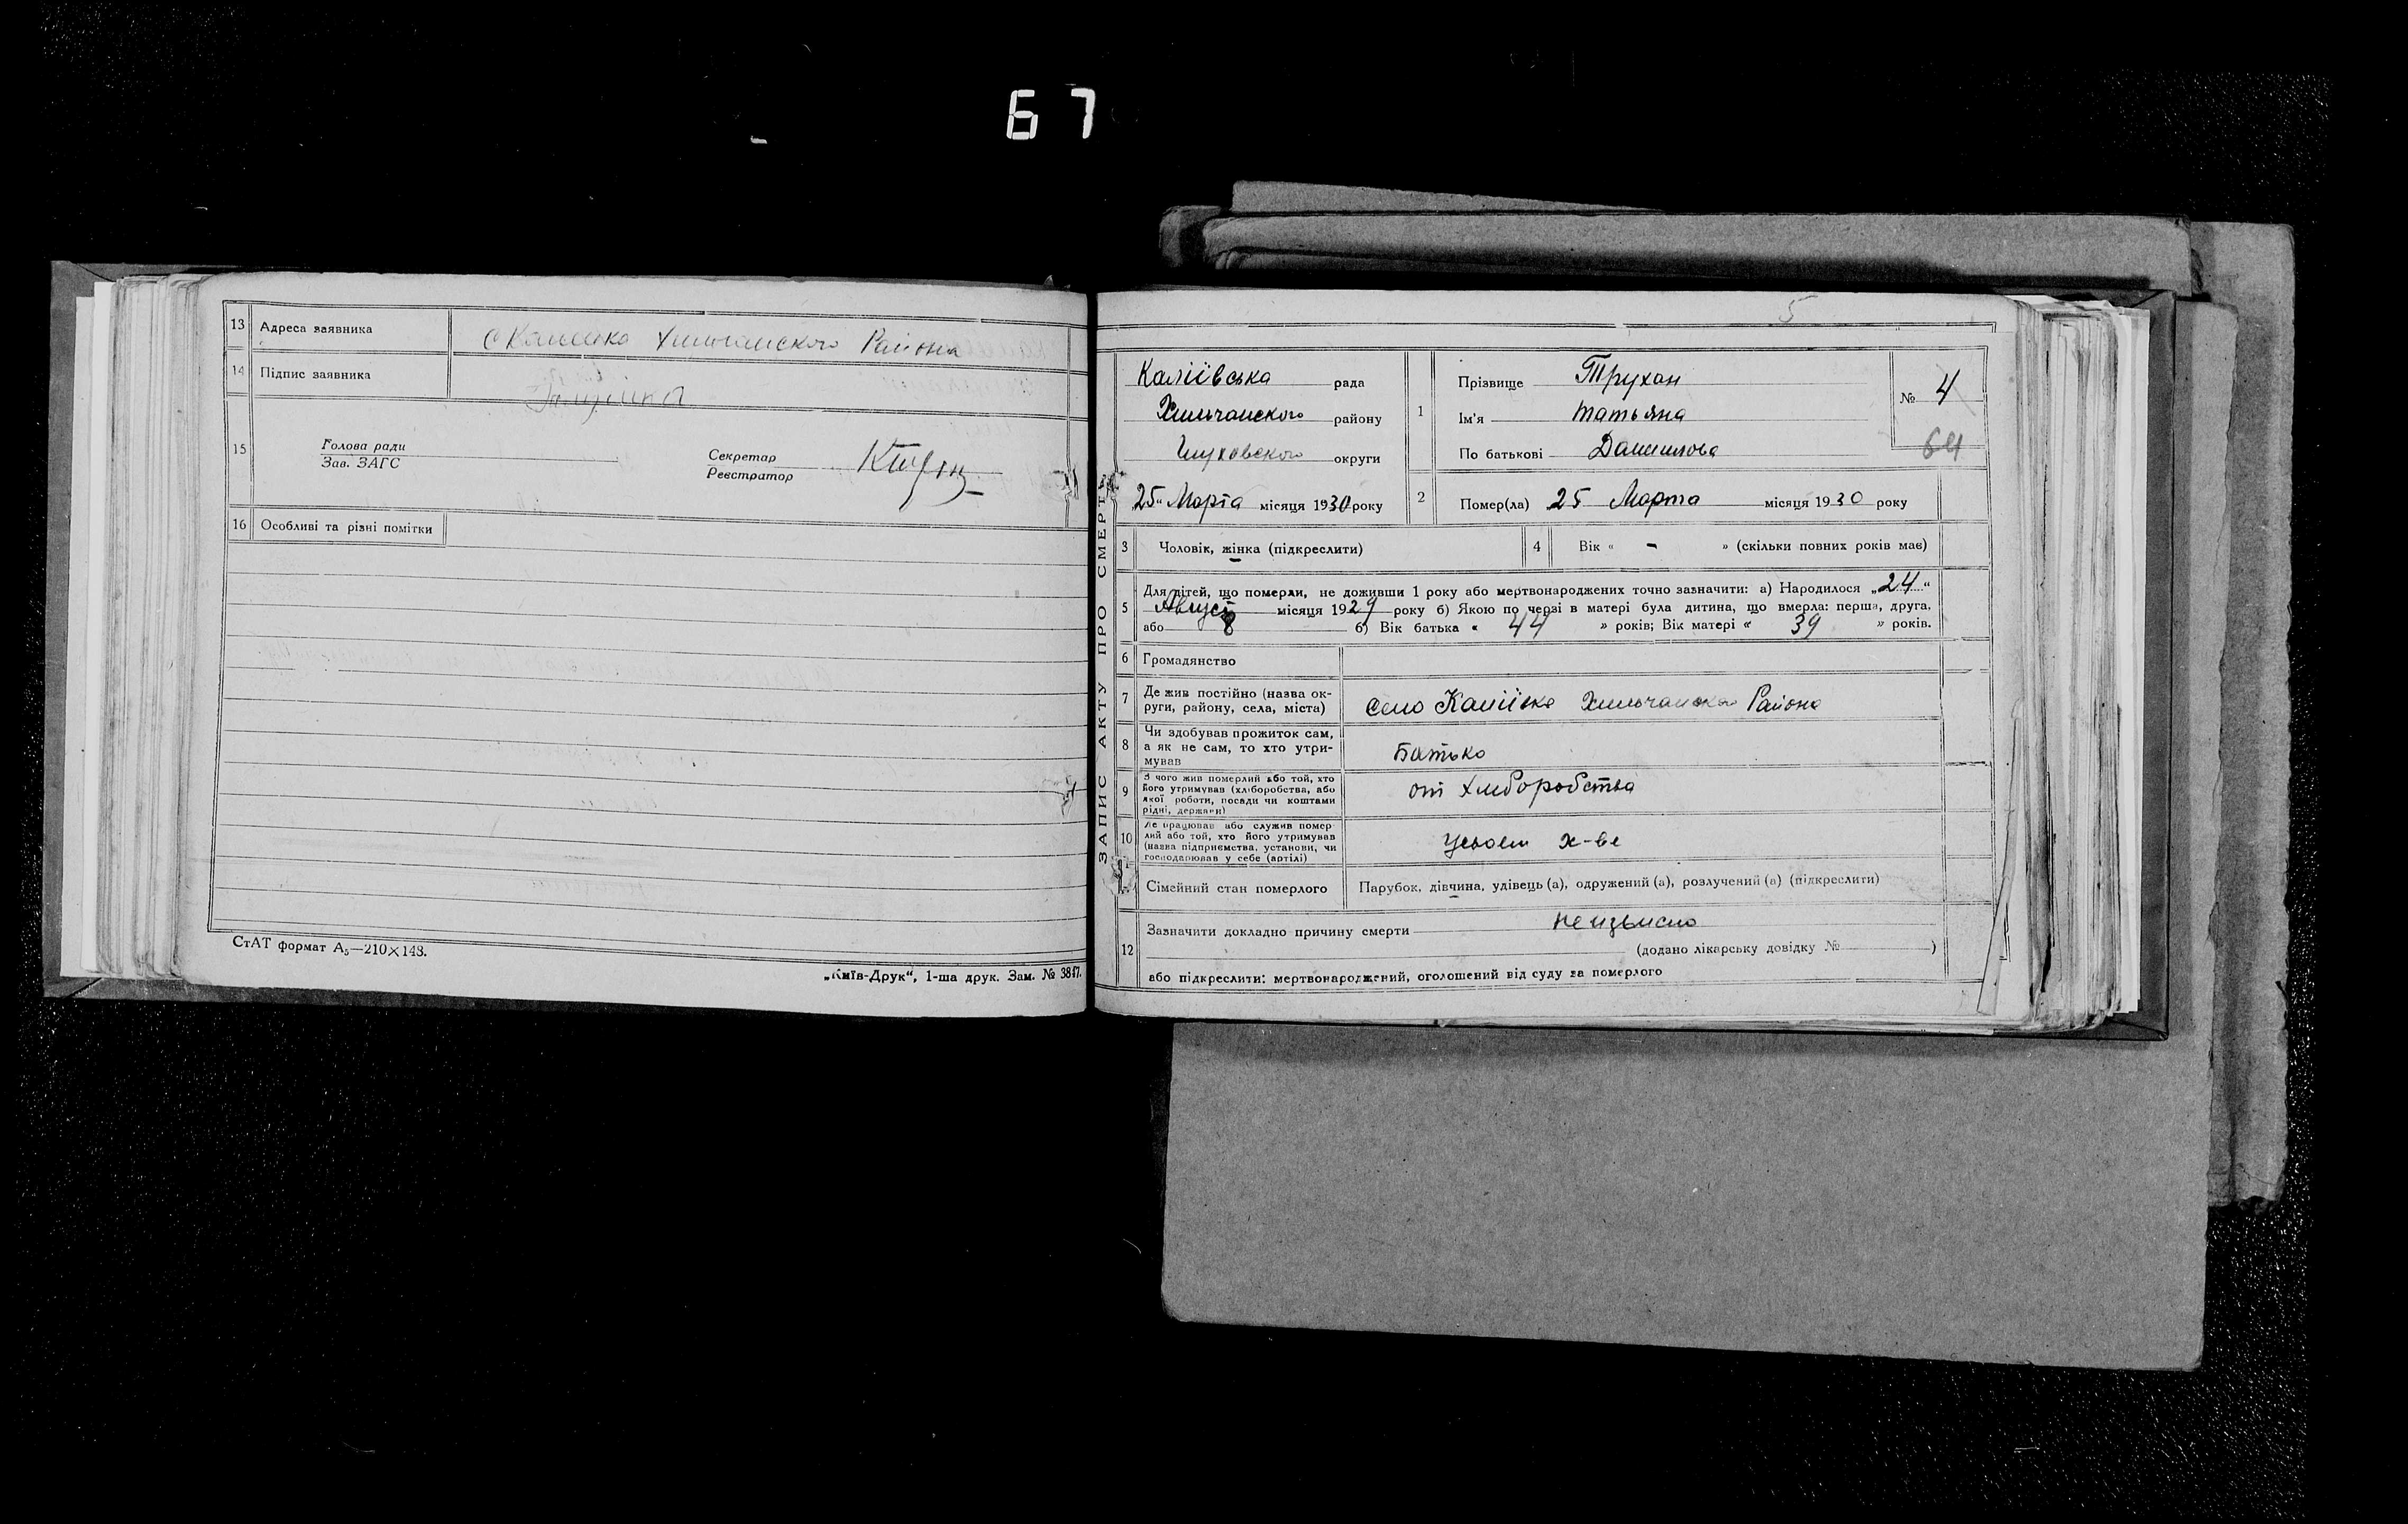 67
13 Адреса заявника с Калиевка Хильчанского Района
14 Підпис заявника
15 Голова ради
Зав. ЗАГС
Секретар
Реєстратор
16 Особливі та різні помітки
СтАТ формат А₅—210×148.
„Київ-Друк“, 1-ша друк. Зам. № 3847.
5
ЗАПИС АКТУ ПРО СМЕРТЬ
Каліївська рада
Хильчанского району
Глуховского округи
25 „ Марта місяця 1930 року
1 Прізвище Трухан
Ім'я Татьяна
По батькові Данилова
№ 4
64
2 Помер(ла) 25 Марта місяця 1930 року
3 Чоловік, жінка (підкреслити)
4 Вік « - » (скільки повних років має)
5 Для дітей, що померли, не доживши 1 року або мертвонароджених точно зазначити: а) Народилося „24“
Август місяця 1929 року б) Якою по черзі в матері була дитина, що вмерла: перша, друга,
або 8 б) Вік батька « 44 » років; Вік матері « 39 » років.
6 Громадянство
7 Де жив постійно (назва ок-
руги, району, села, міста) село Каліївка Хильчанского Района
8 Чи здобував прожиток сам,
а як не сам, то хто утри-
мував Батько
9 З чого жив померлий або той, хто
його утримував (хліборобства, або
якої роботи, посади чи коштами
рідні, держави) от Хлиборобства
10 Де працював або служив помер
лий або той, хто його утримував
(назва підприємства, установи, чи
господарював у себе (артілі) х-ве
Сімейний стан померлого Парубок, дівчина, удівець (а), одружений (а), розлучений (а) (підкреслити)
12 Зазначити докладно причину смерти
(додано лікарську довідку № )
або підкреслити: мертвонароджений, оголошений від суду за померлого